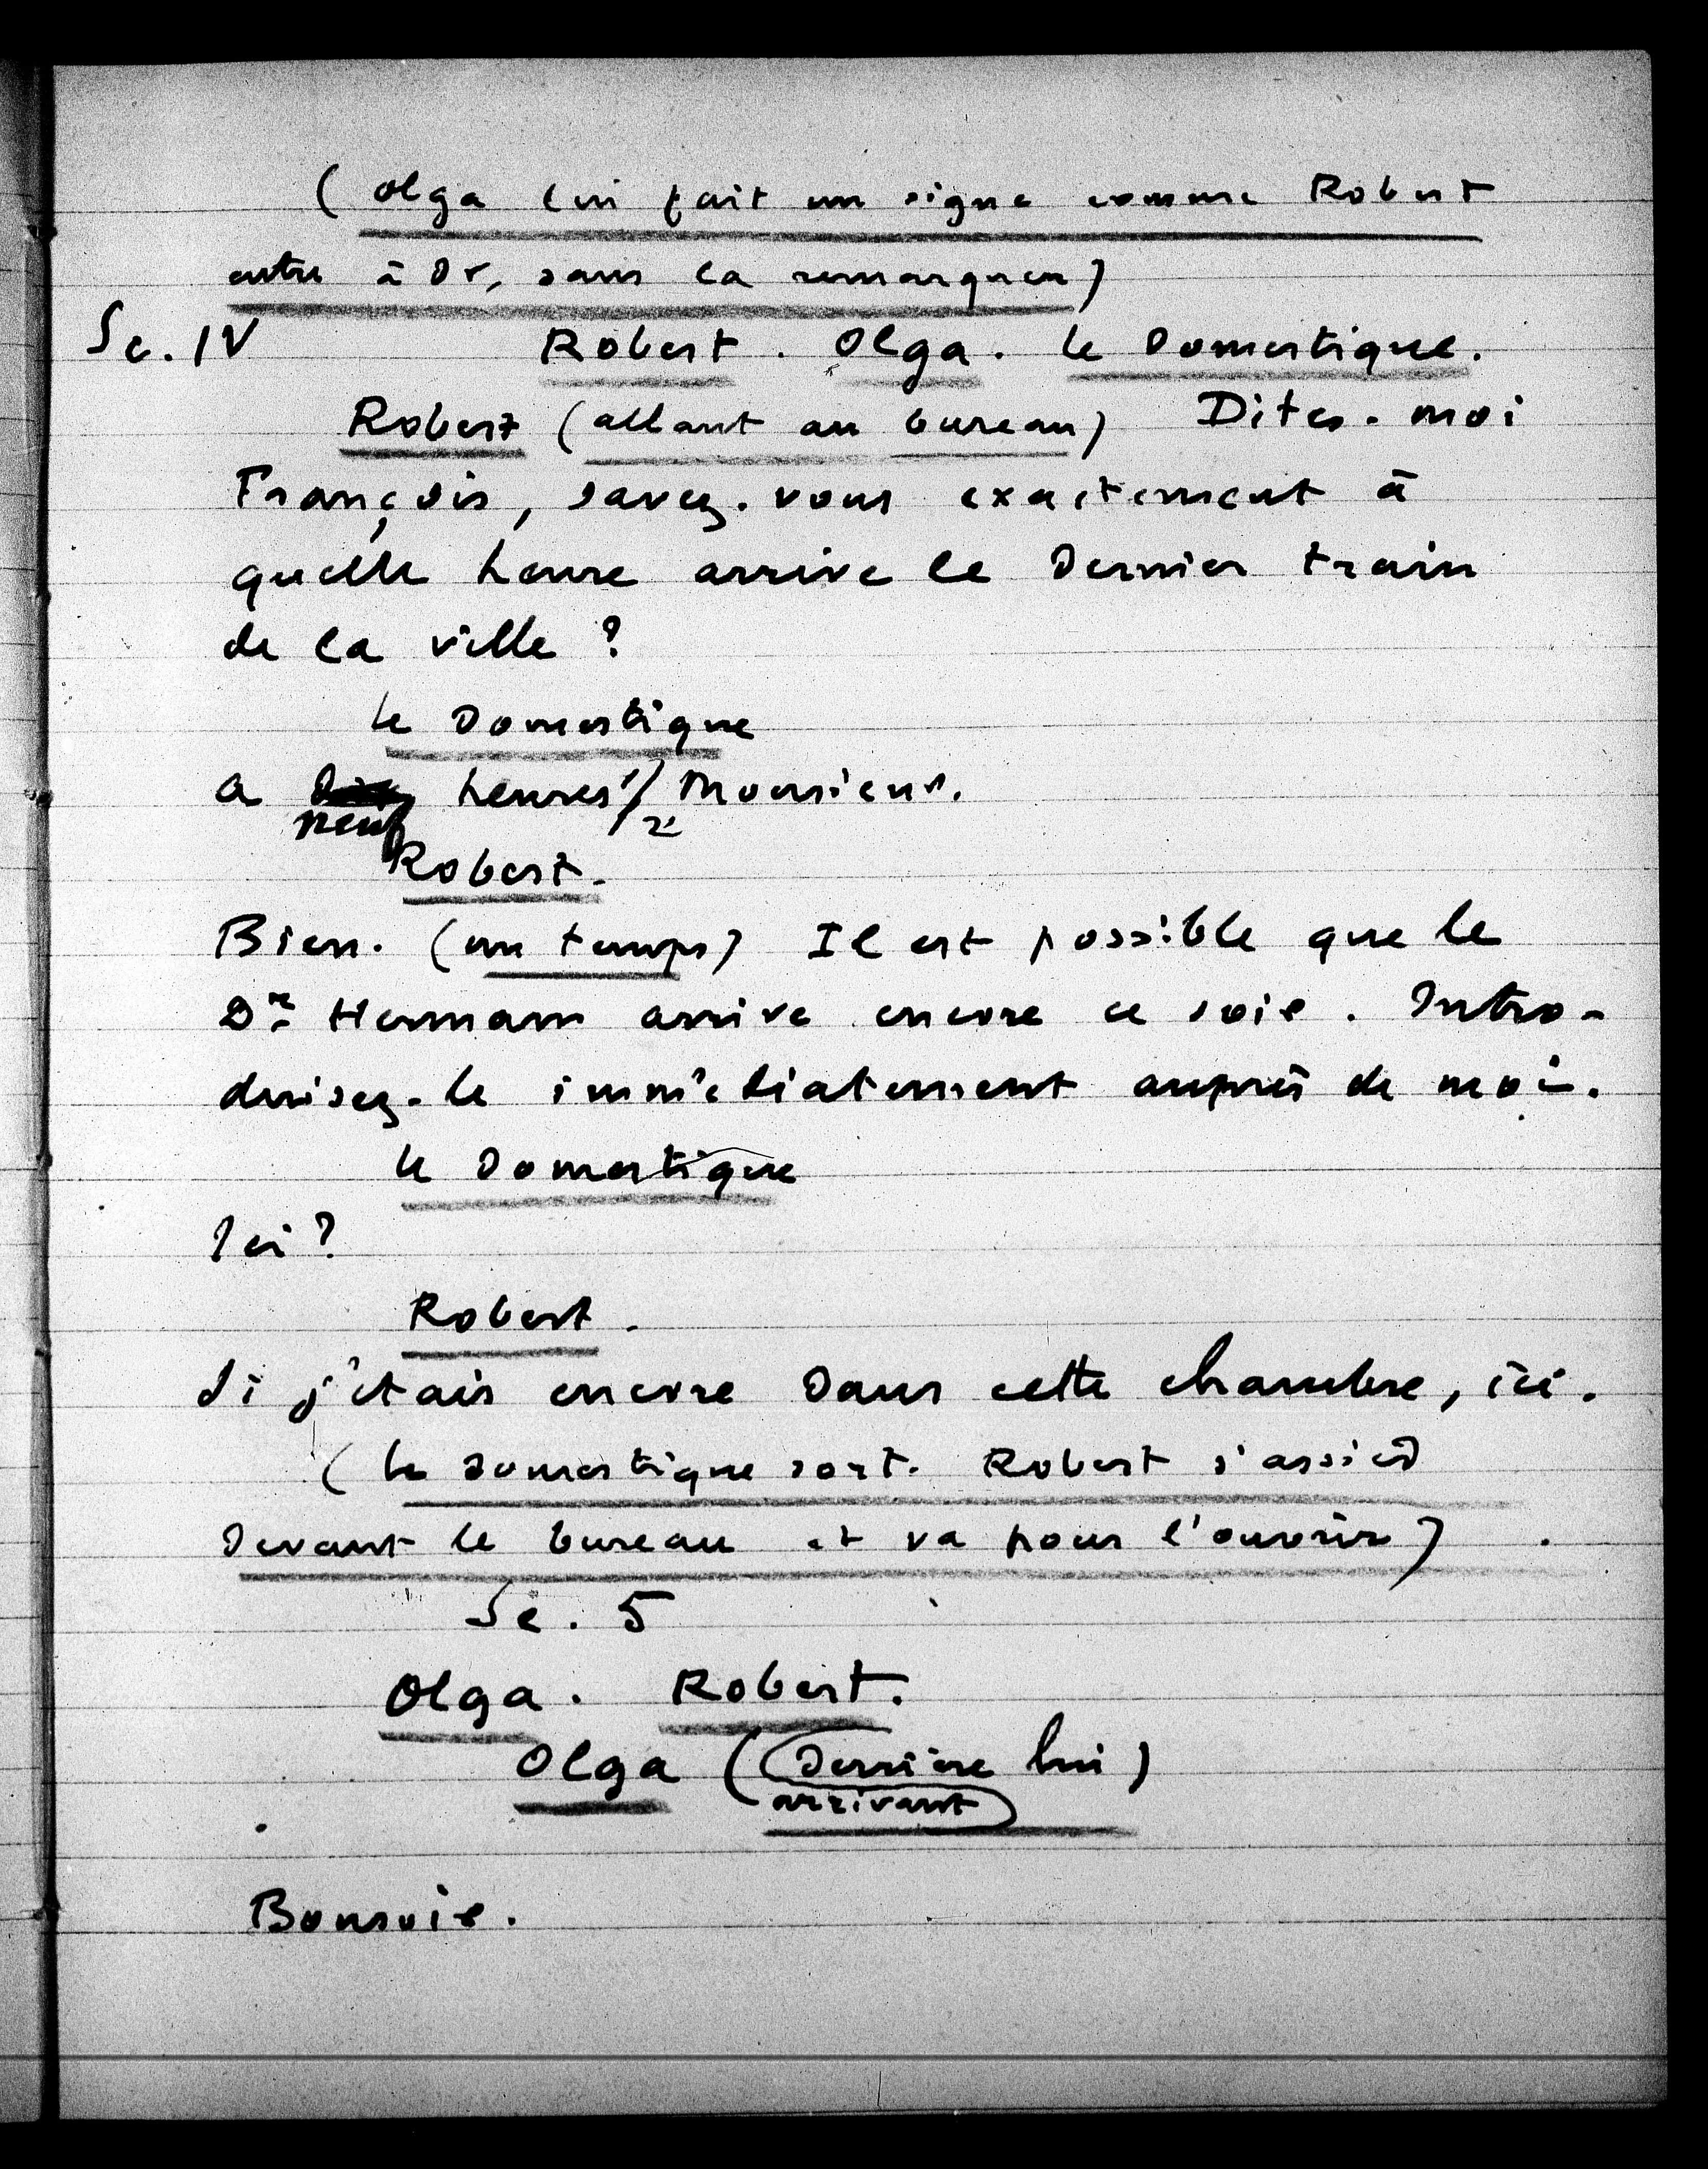 ( Olga lui fait un signe comme Robert
entre à Dr, sans la remarquer)
Sc. IV Robert. Olga. le Domestique.
Robert (allant au bureau) Dites-moi
François, savez-vous exactement à
quelle heure arrive le Dernier train
de la ville ?
le Domestique
a neuf heures 1/2 Monsieur.
Robert.
Bien. (un temps) Il est possible que le
Dr Hermann arrive encore ce soir. Intro-
duisez-le immédiatement auprès de moi.
le Domestique
Ici ?
Robert.
Si j'étais encore Dans cette chambre, ici.
(le Domestique sort. Robert s'assied
Devant le bureau et va pour l'ouvrir)
Sc. 5
Olga. Robert.
Olga (Derrière lui)
arrivant
Bonsoir.